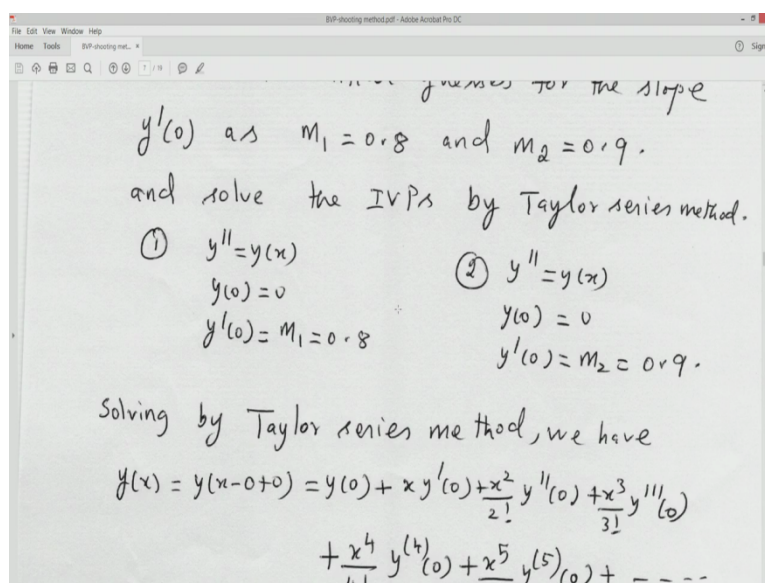 BVP-shooting method.pdf - Adobe Acrobat Pro DC
File Edit View Window Help
Home Tools BVP-shooting met... × Sign
7 / 19
guesses for the slope
y'(0) as m₁ = 0.8 and m₂ = 0.9.
and solve the IVPs by Taylor series method.
① y'' = y(x)
y(0) = 0
y'(0) = m₁ = 0.8
② y'' = y(x)
y(0) = 0
y'(0) = m₂ = 0.9.
Solving by Taylor series method, we have
y(x) = y(x-0+0) = y(0) + x y'(0) + x²/2! y''(0) + x³/3! y'''(0)
+ x⁴/4! y⁽⁴⁾(0) + x⁵ y⁽⁵⁾(0) + -----